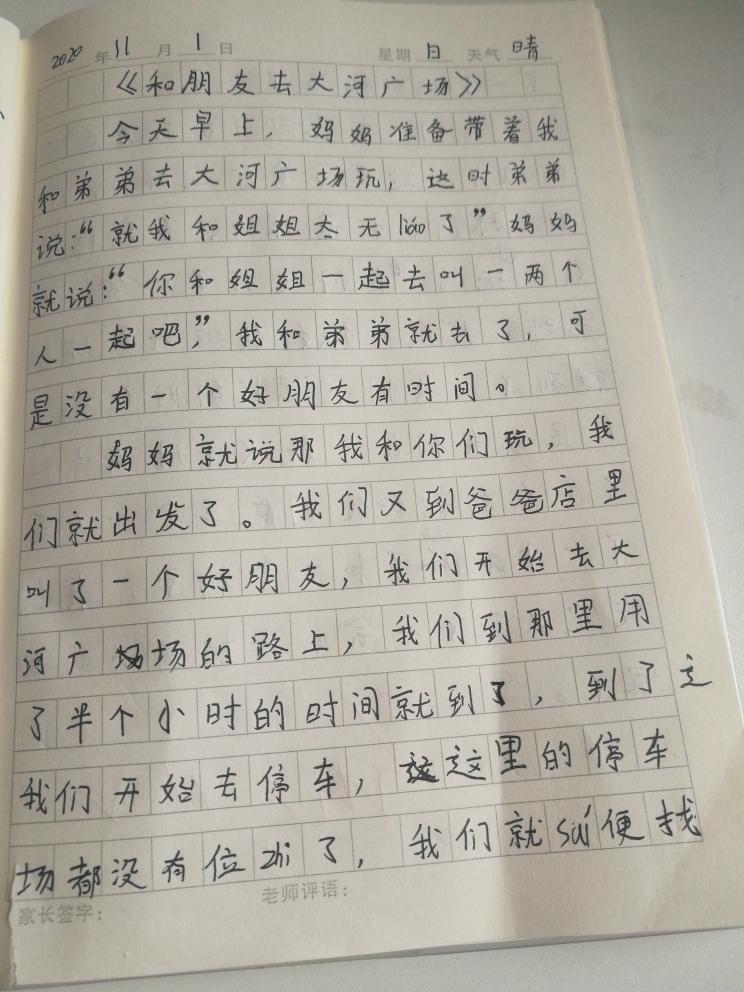 2020年11月1日 星期日 天气晴
《和朋友去大河广场》
今天早上，妈妈准备带着我
和弟弟去大河广场玩，这时弟弟
说：“就我和姐姐太无liáo了”妈妈
就说：“你和姐姐一起去叫一两个
人一起吧，”我和弟弟就去了，可
是没有一个好朋友有时间。
妈妈就说那我和你们玩，我
们就出发了。我们又到爸爸店里
叫了一个好朋友，我们开始去大
河广场场的路上，我们到那里用
了半个小时的时间就到了，到了之
我们开始去停车，这这里的停车
场都没有位zhi了，我们就suí便找
家长签字： 老师评语：